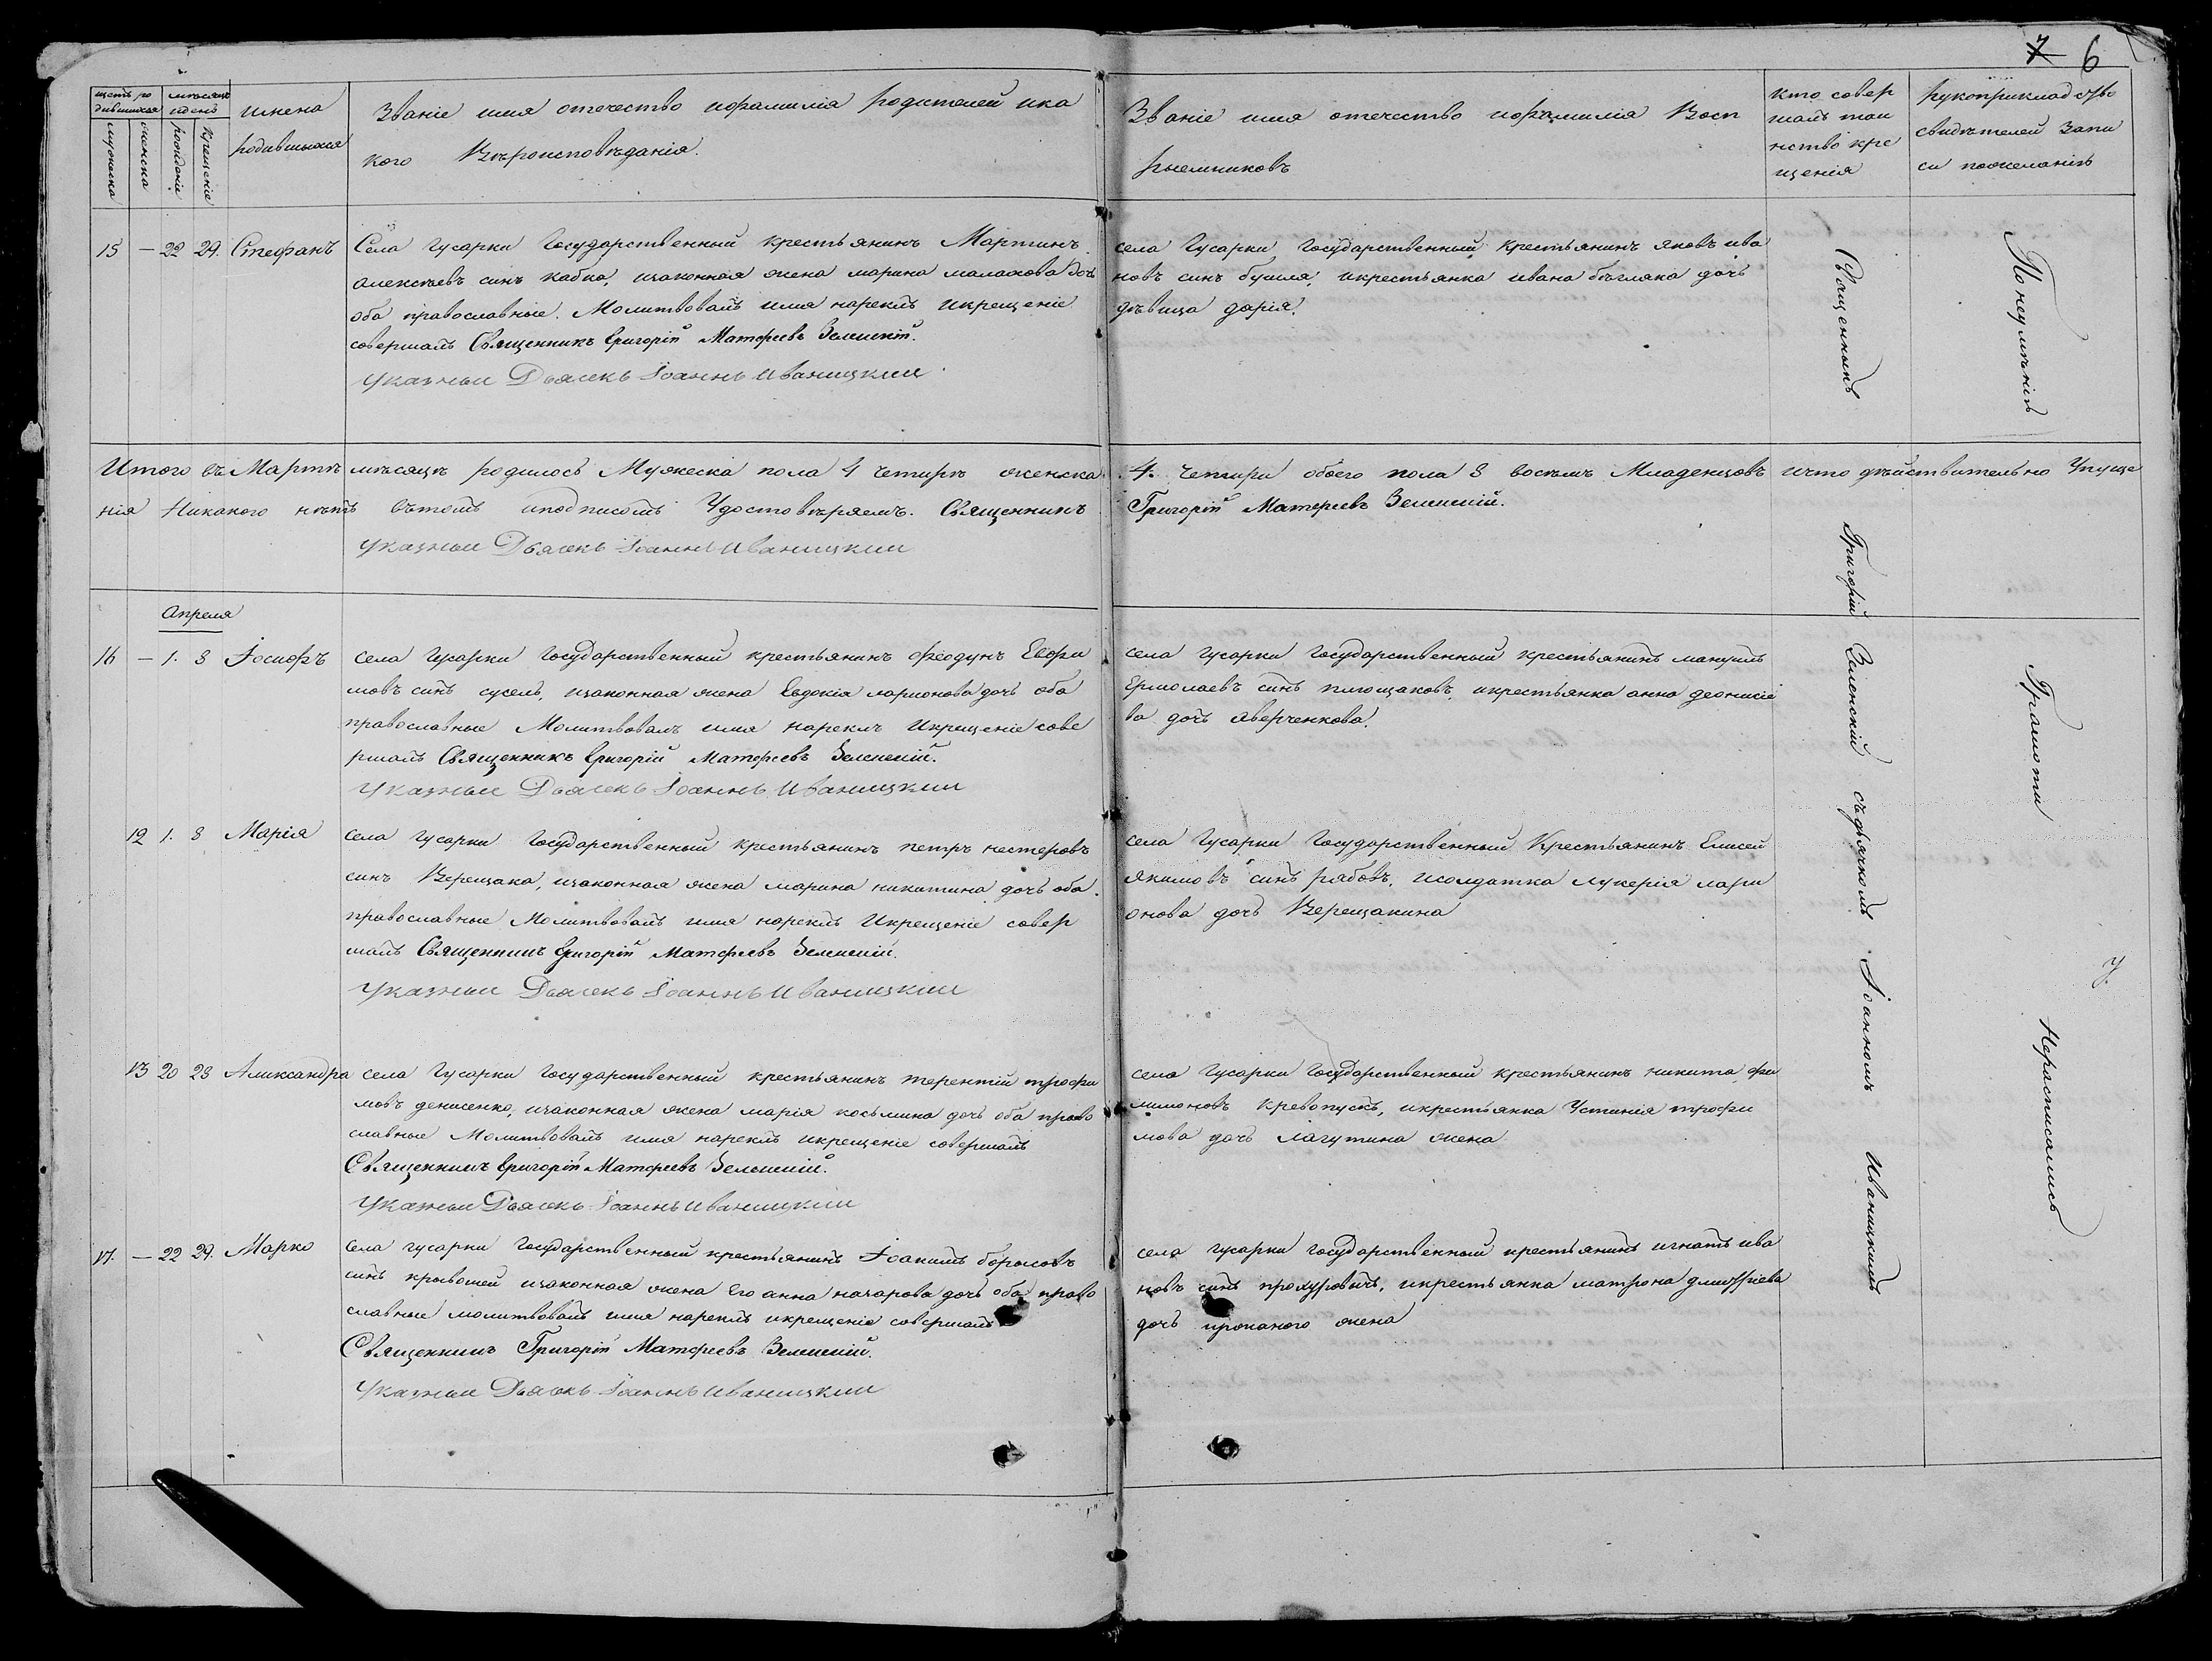 7 6
щетъ ро
дившихся
мѣсяцъ
иденъ
мужеска
женска
рожденіе
крещеніе
имена
родившихся
Званіе имя отечество ифамилія родителей ика
кого Вѣроисповѣданія.
Званіе имя отечество ифамилія Восп
рыемниковъ
кто совер
шалъ таи
нство кре
щенія
рукоприкладство
свидѣтелей Запи
си пожеланію
15 — 22 29. Стефанъ
Села Гусарки Государственный крестьянинъ Мартинъ
алексѣевъ синъ кабка, изаконная жена марина малахова дочъ
оба православные. Молитвовалъ имя нареклъ икрещеніе
совершалъ Священникъ Григорій Матфеевъ Зеленскій.
Указныи Дьячекъ Іоаннъ Иваницкии
села Гусарки Государственный крестьянинъ яковъ ива
новъ синъ бушля, икрестьянка ивана бѣгляка дочъ
дѣвица дарія.
Священникъ Григорій Зеленскій съдьячкомъ Іоанномъ Иваницкимъ
Понеумѣнію Грамоти Нерасписались
Итого въ Мартѣ мѣсяцѣ родилось Мужеска пола 4 четирѣ женска 4. четири обоего пола 8 восемъ Младенцовъ ичто дѣйствительно Упуще
нія Никакого нѣтъ вътомъ иподписомъ Удостовѣряемъ. Священникъ Григорій Матфеевъ Зеленскій.
Указныи Дьячекъ Іоаннъ Иваницкии
Апреля
16 — 1. 8 Іосифъ
села Гусарки Государственный крестьянинъ феодунъ Евфи
мовъ синъ сусель, изаконная жена Евдокія ларионова дочъ оба
православные Молитвовалъ имя нареклъ Икрещеніе сове
ршалъ Священникъ Григорій Матфеевъ Зеленскій.
Указныи Дьячекъ Іоаннъ Иваницкии
села гусарки Государственный крестьянинъ мануилъ
Ермолаевъ синъ плющаковъ, икрестьянка анна деонисіе
ва дочъ Аверченкова.
12 1. 8 Марія
села гусарки Государственный крестьянинъ петръ нестеровъ
синъ Верещака, изаконная жена марина никитина дочъ оба
православные Молитвовалъ имя нареклъ Икрещеніе совер
шалъ Священникъ Григорій Матфеевъ Зеленскій.
Указныи Дьячекъ Іоаннъ Иваницкии
села Гусарки Государственный Крестьянинъ Елисей
якимовъ синъ рябовъ, исолдатка лукерія лари
онова дочъ Верещакина
13 20 23 Александра
села Гусарки Государственный крестьянинъ терентій трофи
мовъ денисенко, изаконная жена марія косьмина дочъ оба право
славные Молитвовалъ имя нареклъ икрещеніе совершалъ
Священникъ Григорій Матфеевъ Зеленскій.
Указныи Дьячекъ Іоаннъ Иваницкии
села Гусарки Государственный крестьянинъ никита фи
лимоновъ кревопускъ, икрестьянка Устинія трофи
мова дочъ лагутина жена
17. — 22 29. Марко
Села гусарки Государственный крестьянинъ Іоакимъ борисовъ
синъ кривошей изаконная жена Его анна назарова дочъ оба право
славные молитвовалъ имя нареклъ икрещеніе совершалъ
Священникъ Григорій Матфеевъ Зеленскій.
Указныи Дьячекъ Іоаннъ Иваницкии
села гусарки Государственный крестьянинъ игнатъ ива
новъ синъ икрестьянка матрона дмитріева
дочъ жена